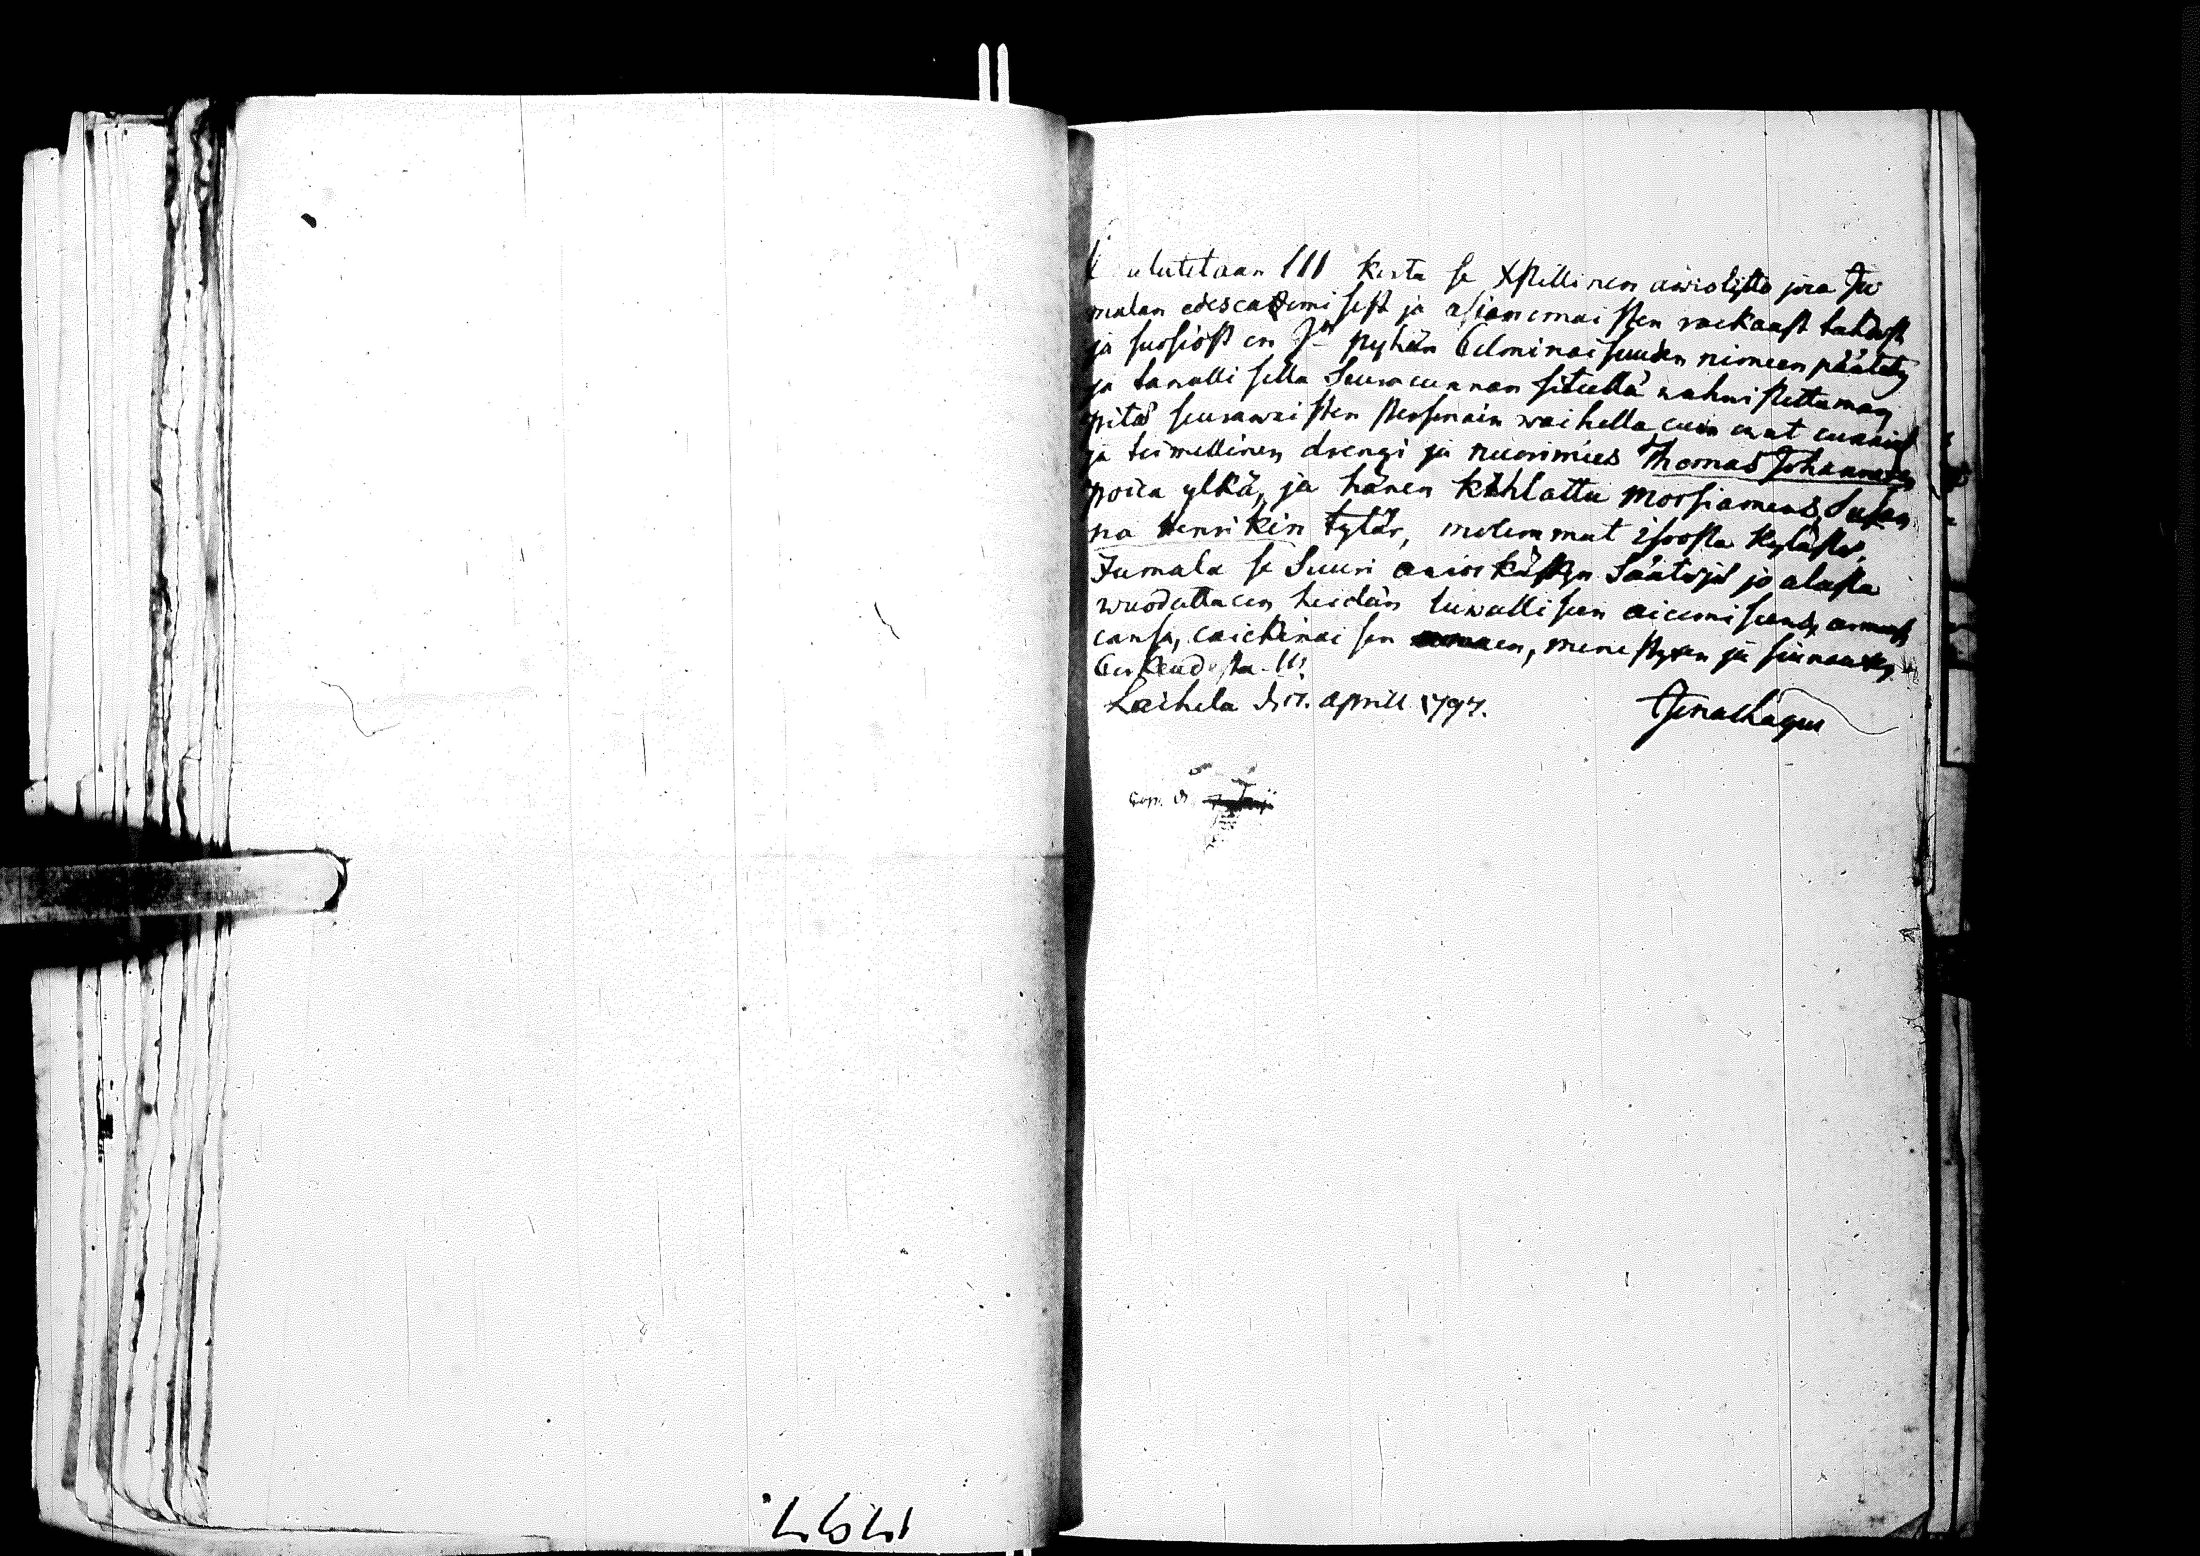 Culutetaan III Kerta se Xstillinen awioliitto joca Ju
malan edescatzemisest ja asianomaisten rackaast tahdost
ja suosiost on Jn pyhän Colminaisuuden nimeen päätetty
ja tawallisella Seuracunnan siteellä wahwistettaman
pitä seurawaisten Personain waihella cuin owat cunnial
ja toimellinen drengi ja nuorimies Thomas Johannexen
poica ylkä, ja hänen kihlattu morsiamens Susan
na Henrikin tytär, molemmat Isosta Kylästä.
Jumala se Suuri awios käskyn Säätäjä jo alusta
wuodattacon heidän luwallisen aicomisens armons
cansa, caickinaisen menestyxen ja siunauxen
Corkeudesta. III.
Laihela d. 17. April 1797.
1797.